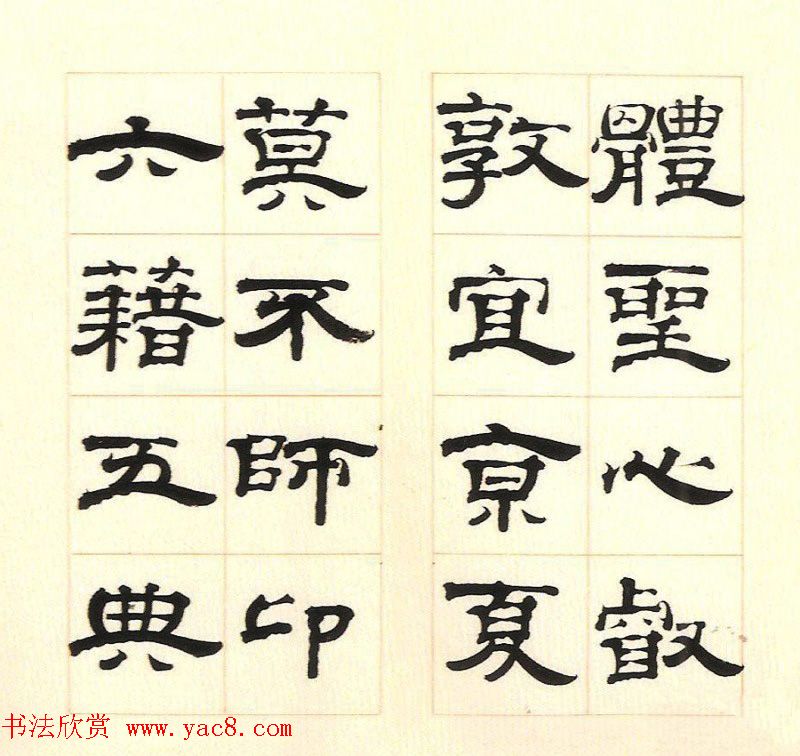 體聖心叡
敦宜京夏
莫不師卬
六藉五典
书法欣赏 www.yac8.com